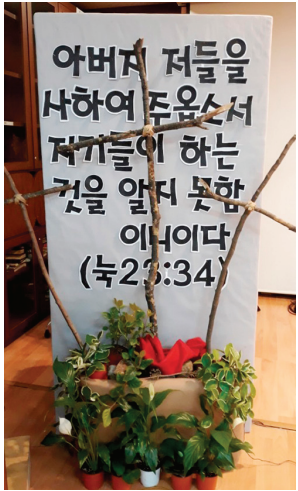 아버지 저들을
사하여 주옵소서
자기들이 하는
것을 알지 못함
이니이다
(눅23:34)